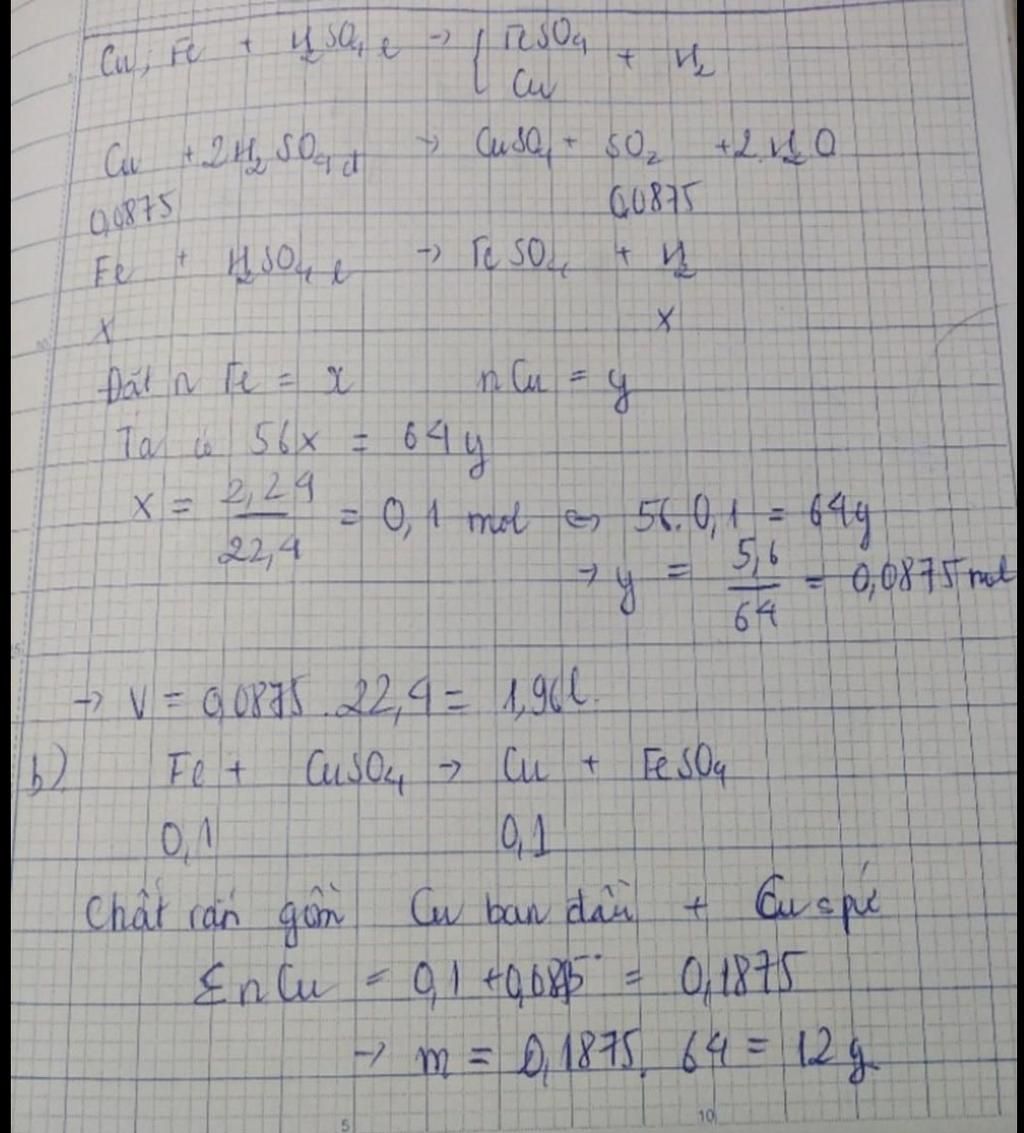 Cu, Fe + H₂SO₄ l → { FeSO₄ Cu + H₂
Cu + 2H₂SO₄ đ → CuSO₄ + SO₂ + 2H₂O
0,0875 0,0875
Fe + H₂SO₄ l → FeSO₄ + H₂
x x
Đặt n Fe = x n Cu = y
Ta có 56x = 64y
x = 2,24 / 22,4 = 0,1 mol ⇔ 56.0,1 = 64y
→ y = 5,6 / 64 = 0,0875 mol
→ V = 0,0875.22,4 = 1,96l.
b) Fe + CuSO₄ → Cu + FeSO₄
0,1 0,1
Chất rắn gồm Cu ban đầu + Cu spư
ΣnCu = 0,1 + 0,0875 = 0,1875
→ m = 0,1875.64 = 12g
5 10